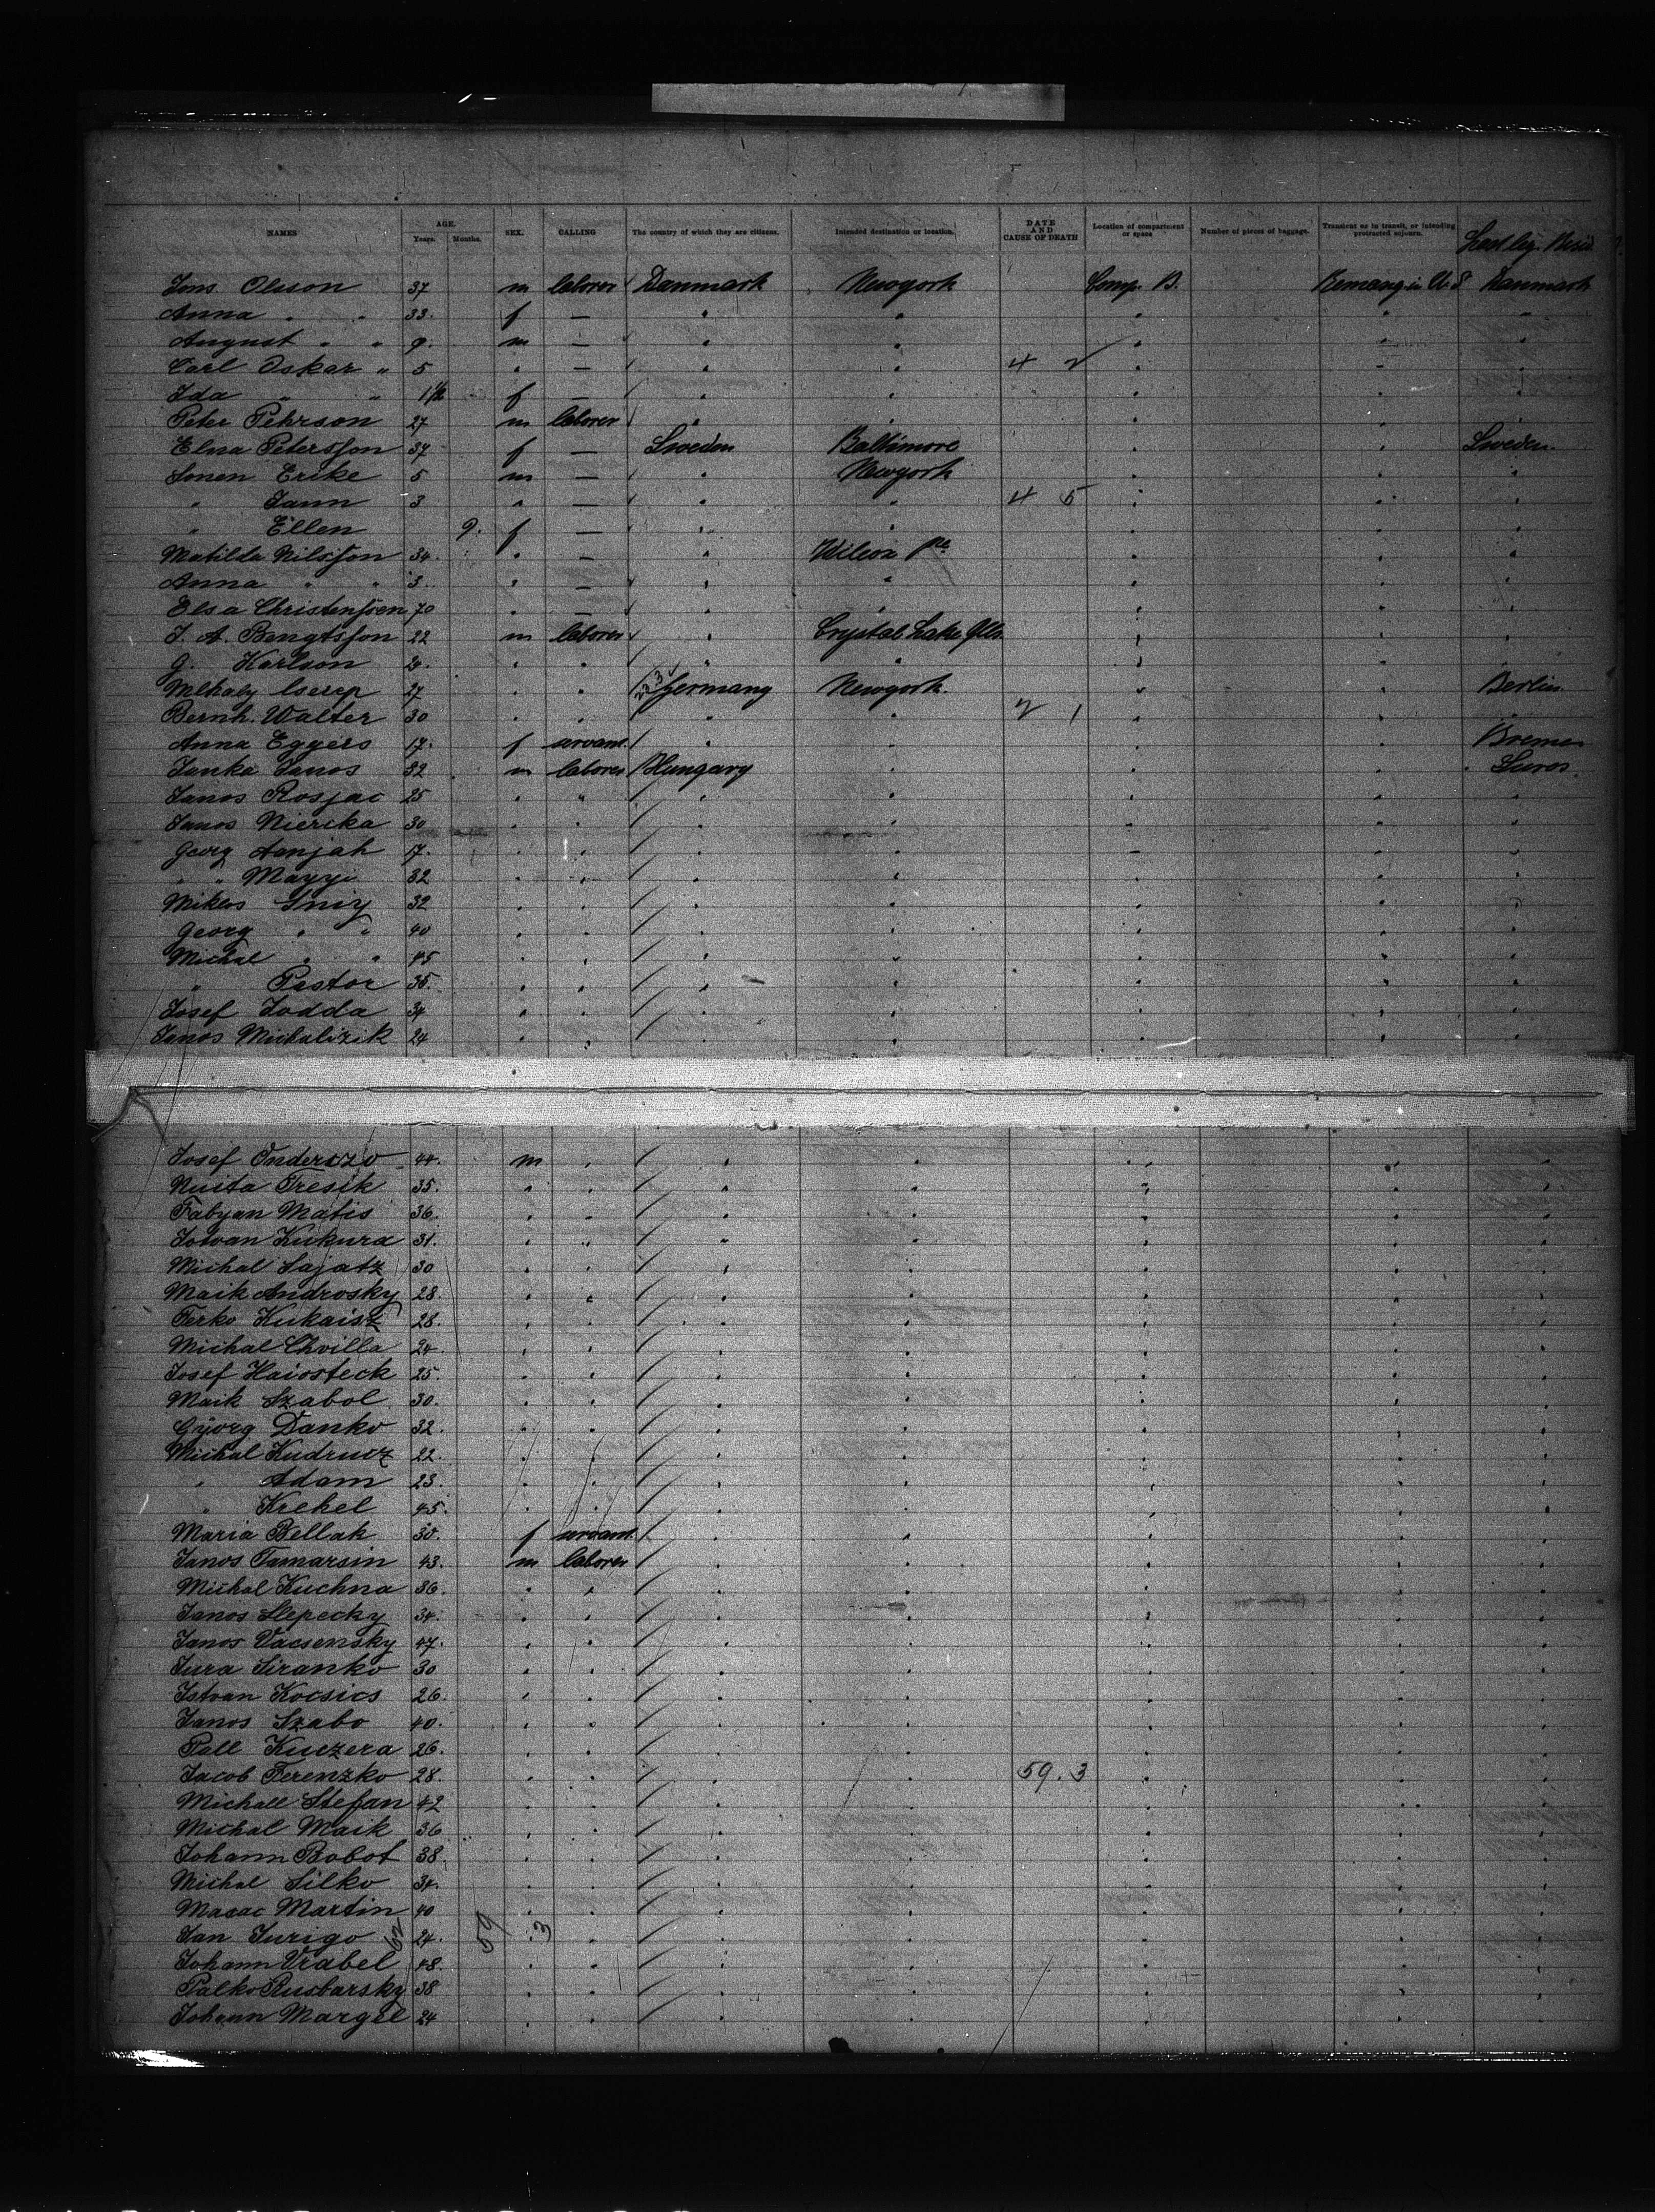 NAMES AGE. Years. Months. SEX. CALLING The country of which they are citizens. Intended destination or location. DATE AND CAUSE OF DEATH Location of compartment or space Number of pieces of baggage. Transient or in transit, or intending protracted sojourn.
Jons Olsson 37 m laborer Danmark Newyork Comp. B. Danmark
Anna " " 33. f — " " " " "
August " " 9. m — " " " " "
Carl Oskar " 5 " — " " 4 2 " " "
Ida " " 1 1/2 f — " " " " "
Peter Pehrson 27 m laborer " " " " "
Elna Petersson 37 f — Sweden Baltimore " " Sweden
Sonen Erike 5 m — " Newyork " " "
" Jann 3 " — " " 4 5 " " "
" Ellen 9. f — " " " " "
Matilda Nilsson 34. " — " Wilcox Pa " " "
Anna " " 3. " — " " " " "
Elsa Christenssen 70 " — " " " " "
J. A. Bengtsson 22 m laborer " Crystal Lake Ills. " " "
G. Karlson 20. " " " " " " "
27 " " Germany Newyork. " " Berlin
Bernh. Walter 30 " " " " 2 1 " " "
Anna Eggers 17. f servant. " " " " Bremen
Janka Janos 32 m laborer Hungary " " "
Janos Rosjac 25 " " " " " " "
Janos Niercka 30 " " " " " " "
Georg 17. " " " " " " "
" " 32 " " " " " " "
Miklos 32 " " " " " " "
Georg " " 40 " " " " " " "
Michal " " 45 " " " " " " "
" Pastor 35. " " " " " " "
Josef Jodda 34 " " " " " " "
Janos Michalizik 24 " " " " " " "
Josef Onderczo 44. m " " " " " "
Tresik 35. " " " " " " "
Fabyan Matis 36. " " " " " " "
Kukura 31. " " " " " " "
Michal Sajatz 30 " " " " " " "
Maik Androsky 28. " " " " " " "
Ferko Kukaisz 28. " " " " " " "
Michal Chvilla 24. " " " " " " "
Josef Haiosteck 25. " " " " " " "
Maik Szabol 30. " " " " " " "
Györg Danko 32. " " " " " " "
Michal Kudrucz 22. " " " " " " "
" Adam 23. " " " " " " "
" Krehel 45. " " " " " " "
Maria Bellak 30. f servant. " " " " "
Janos Tamarsin 43. m laborer " " " " "
Michal Kuchna 36. " " " " " " "
Janos Slepecky 34. " " " " " " "
Janos Vacsensky 47. " " " " " " "
Jura Siranko 30 " " " " " " "
Istvan Kocsics 26. " " " " " " "
Janos Szabo 40. " " " " " " "
Pall Kuczera 26. " " " " " " "
Jacob Ferenzko 28. " " " " 59. 3 " " "
Michall Stefan 42 " " " " " " "
Michal Maik 36 " " " " " " "
Johann Bobot 38. " " " " " " "
Michal Silko 34. " " " " " " "
Masac Martin 40 " " " " " " "
Jan Jurigo 62 24. 59 3 " " " " " "
Johann Vrabel 48. " " " " " " "
Palko Rusbarsky 38 " " " " " " "
Johann Margel 24 " " " " " " "